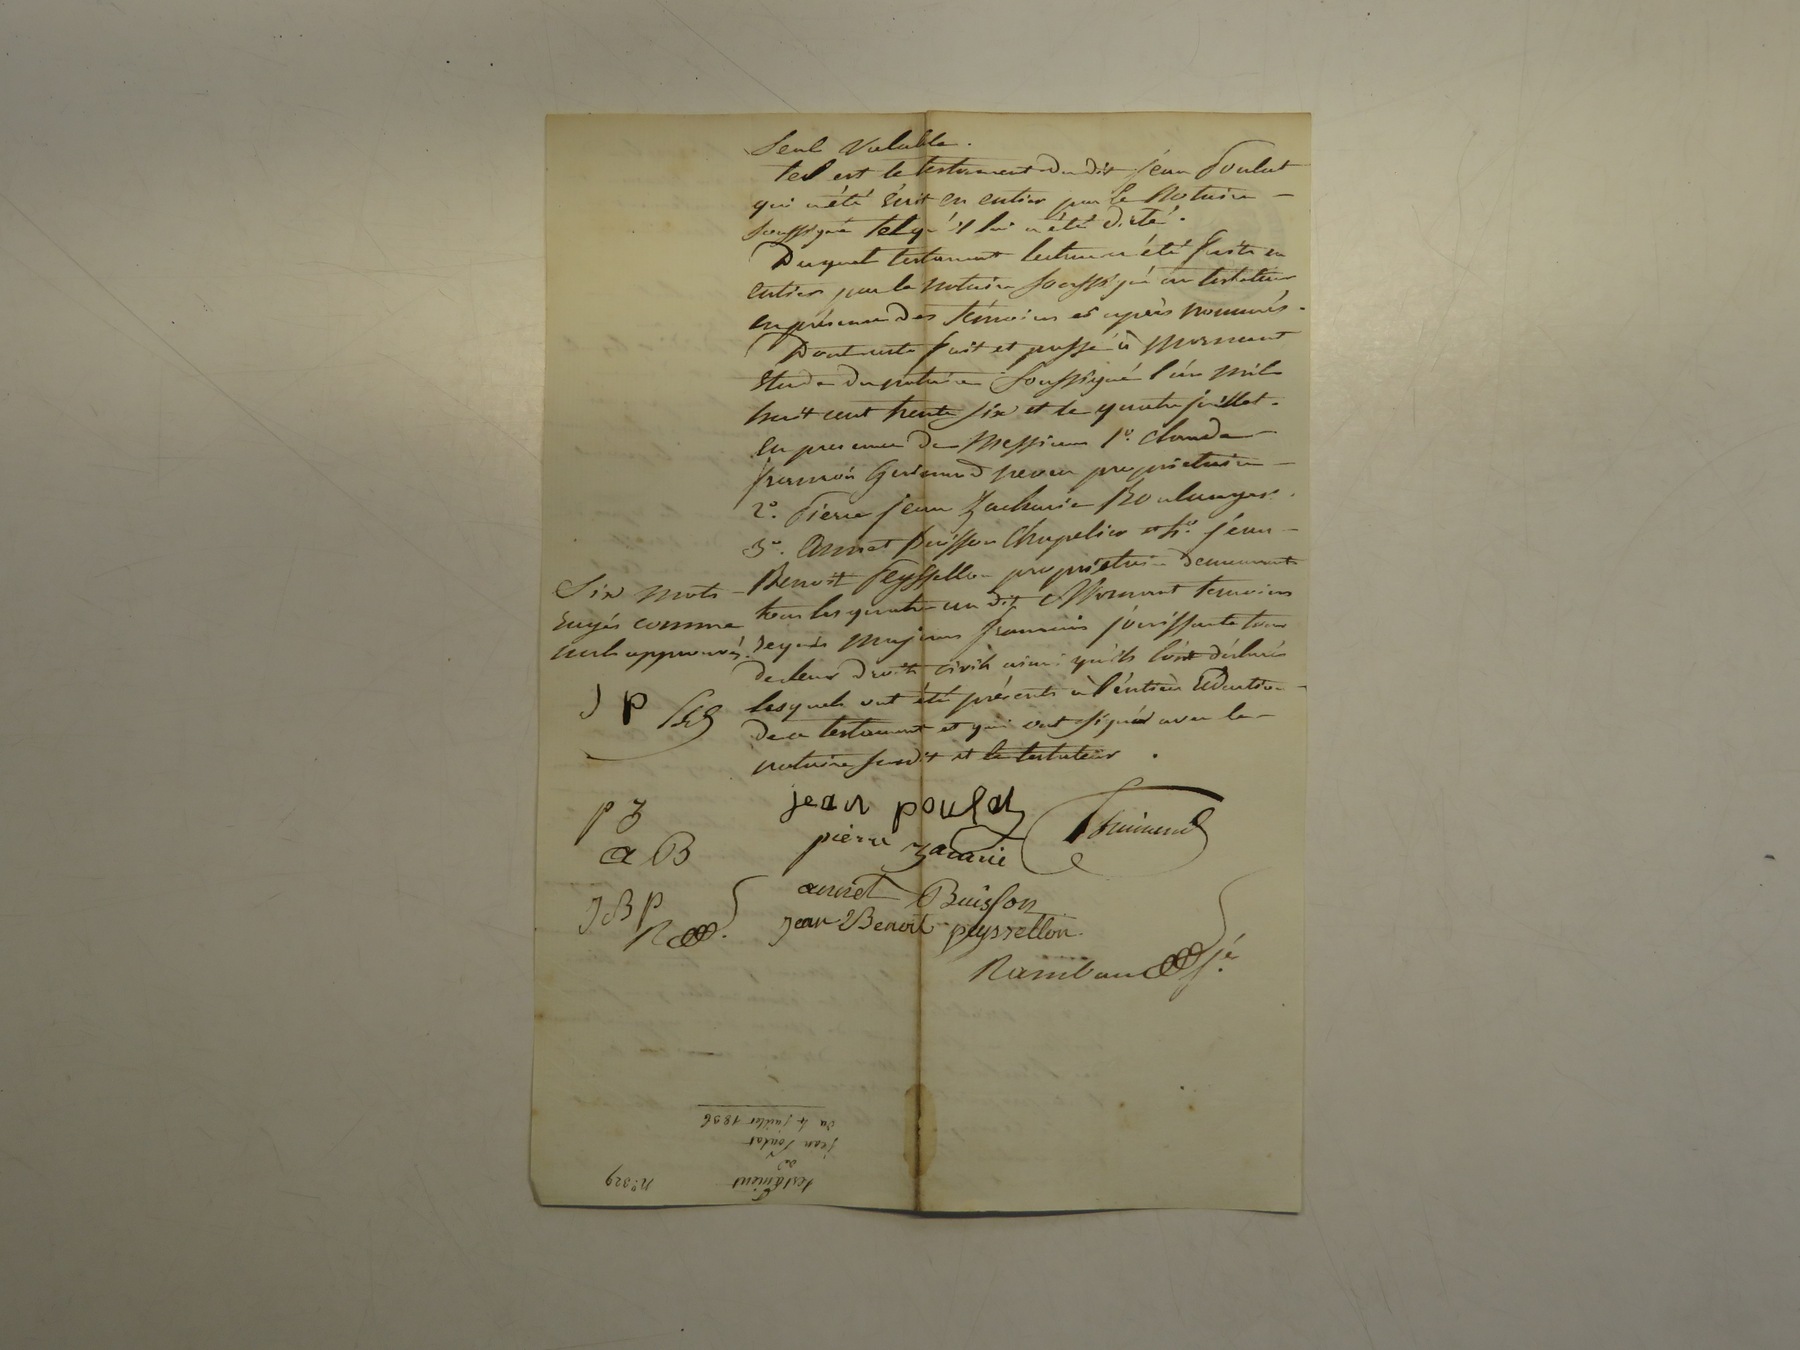 Seul valable.
tel est le testament dudit jean Poulat
qui a été écrit en entier par le Notaire
soussigné tel qu'il lui a été dicté.
Duquel testament lecture a été faite en
entier par le notaire soussigné au testateur
en présence des témoins ci après nommés.
Dont acte fait et passé à Mornant
étude du notaire soussigné l'an mil
huit cent trente six et le quatre juillet.
en presence de Messieurs 1º. Claude
françois Guimand propriétaire
2º. Pierre jean Zacharie Boulanger.
3º. Annet Buisson Chapelier et 4º. jean
Benoit Peyssellon propriétaire demeurant
tous les quatre au dit Mornant temoins
requis majeurs français jouissants tous
de leurs droits civils ainsi qu'ils l'ont déclaré
lesquels ont été présents à l'entière rédaction
de ce testament et qui ont signé avec le
notaire susdit et le testateur.
Six mots
rayés comme
nuls approuvés.
J P
p z
a B
J B P
jean poulat
pierre zacarie
annet Buisson
jean Benoit peyssellon
Rambau
nº. 329
testament
de
jean Poulat
du 4 juillet 1836